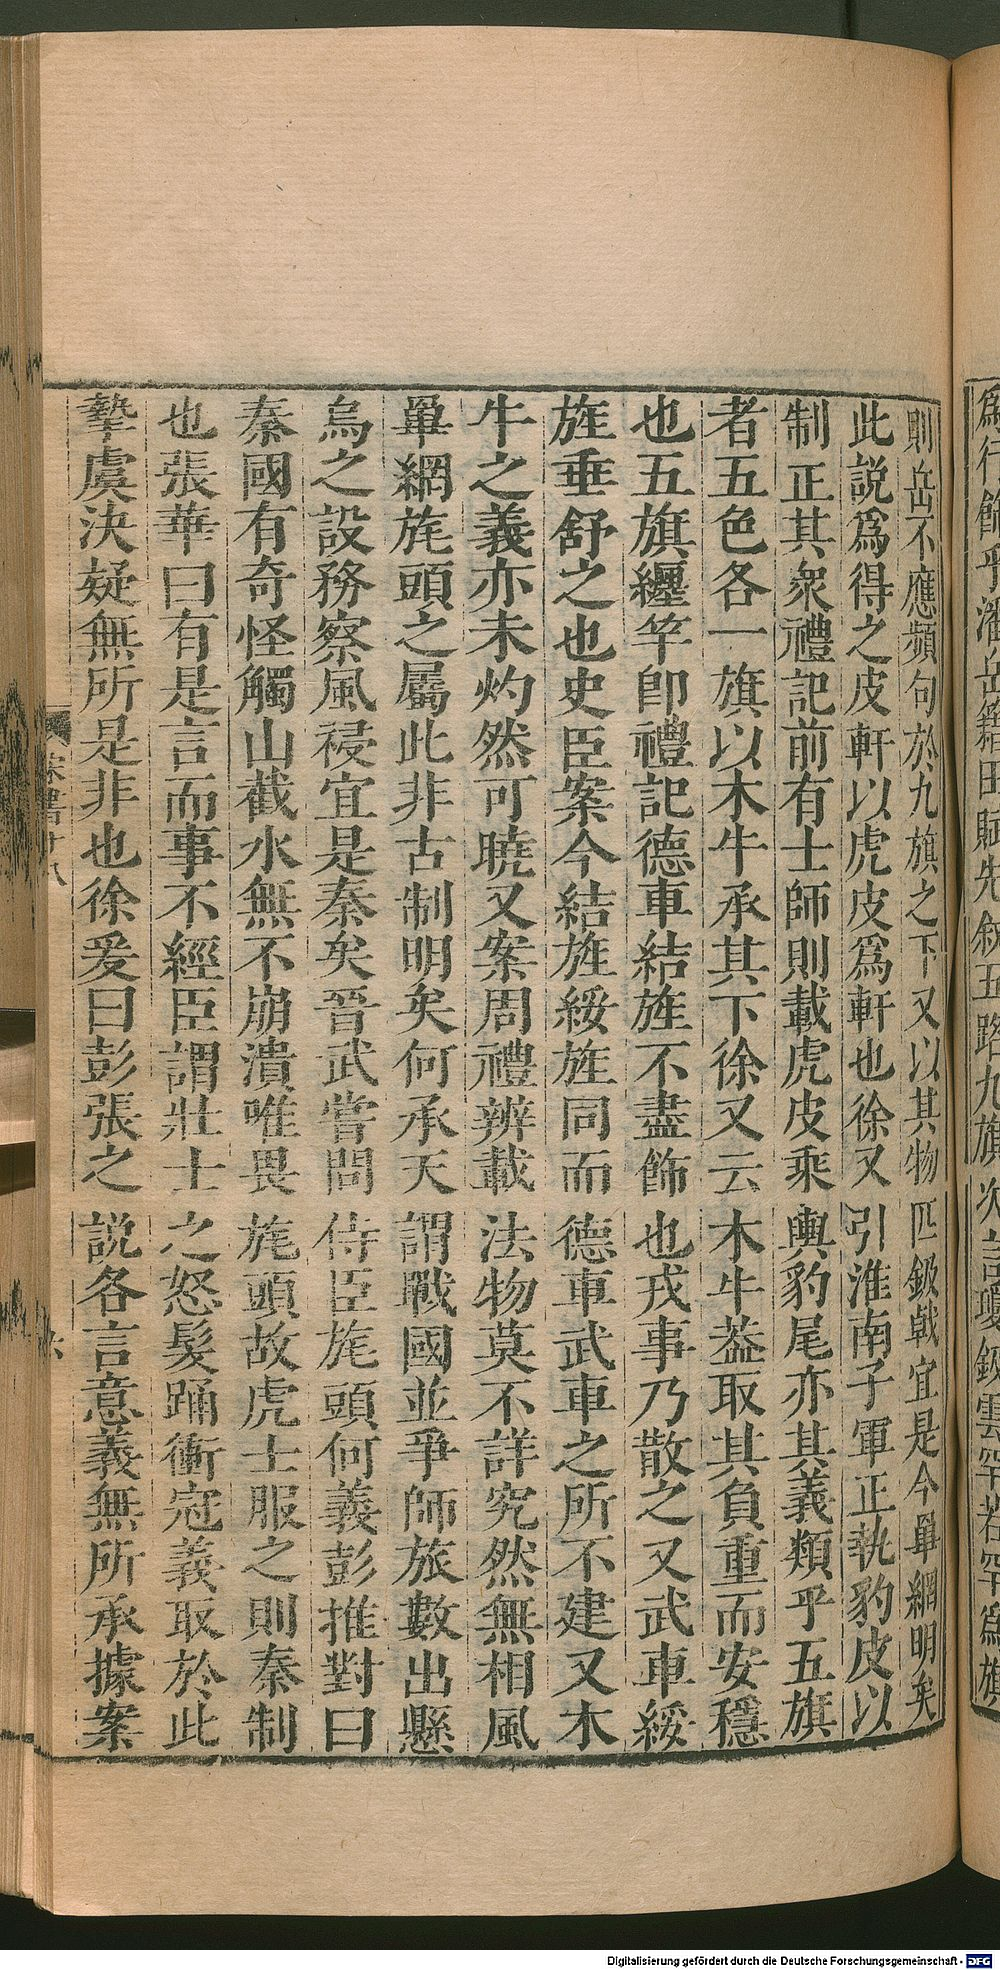 爲行餙乎潘岳籍田賦先叙五路九旗次言瓊鈒雲罕若罕爲旗
則岳不應頻句於九旗之下又以其物匹鈒戟宜是今畢網明矣
此說爲得之皮軒以虎皮爲軒也徐又引淮南子軍正執豹皮以
制正其衆禮記前有士師則載虎皮乘輿豹尾亦其義類乎五旗
者五色各一旗以木牛承其下徐又云木牛葢取其負重而安穩
也五旗纏竿卽禮記德車結旌不盡飾也戎事乃散之又武車綏
旌垂舒之也史臣案今結旌綏旌同而德車武車之所不建又木
牛之義亦未灼然可曉又案周禮辨載法物莫不詳究然無相風
畢網旄頭之屬此非古制明矣何承天謂戰國並爭師旅數出懸
烏之設務察風祲宜是秦矣晉武嘗問侍臣旄頭何義彭推對曰
秦國有奇怪觸山截水無不崩潰唯畏旄頭故虎士服之則秦制
也張華曰有是言而事不經臣謂壯士之怒髮踊衝冠義取於此
摯虞決疑無所是非也徐爰曰彭張之說各言意義無所承據案
宋書十八
Digitalisierung gefördert durch die Deutsche Forschungsgemeinschaft - DFG